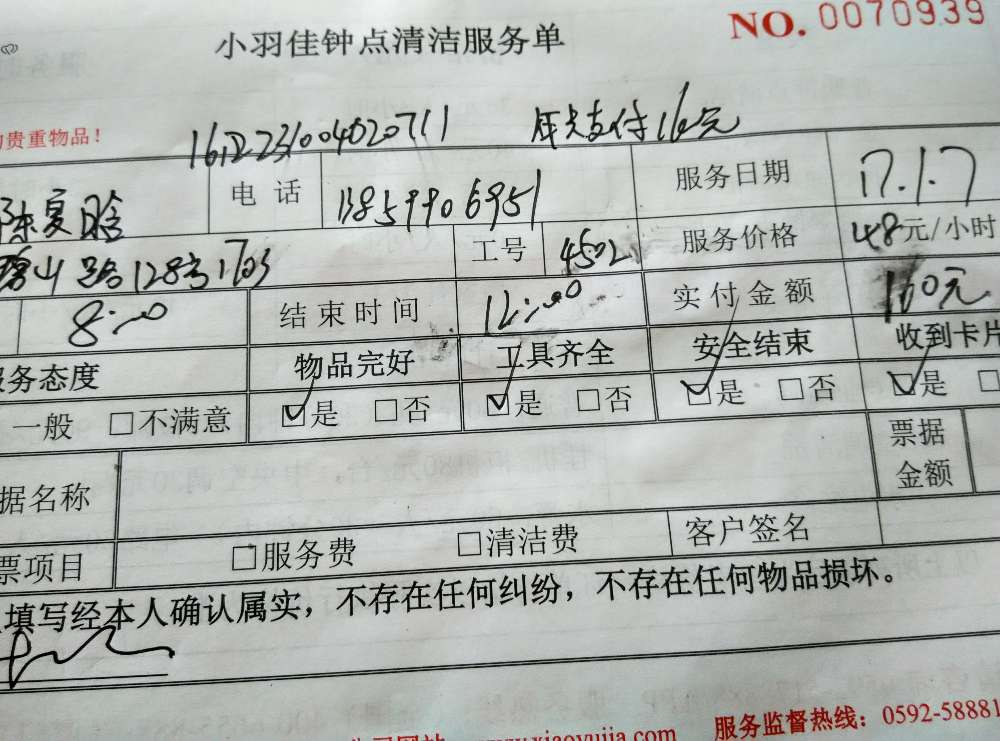 小羽佳钟点清洁服务单 NO. 0070939
贵重物品！
1612231004020711 年卡支付160元
电话 13859906951 服务日期 17.1.7
山路128号1703 工号 4502 服务价格 48元/小时
8:00 结束时间 12:00 实付金额 160元
务态度 物品完好 工具齐全 安全结束 收到卡片
一般 □不满意 ☑是 □否 ☑是 □否 ☑是 □否 ☑是 □
据名称 票据金额
票项目 □服务费 □清洁费 客户签名
填写经本人确认属实，不存在任何纠纷，不存在任何物品损坏。
www.xiaoyujia.com 服务监督热线：0592-58881